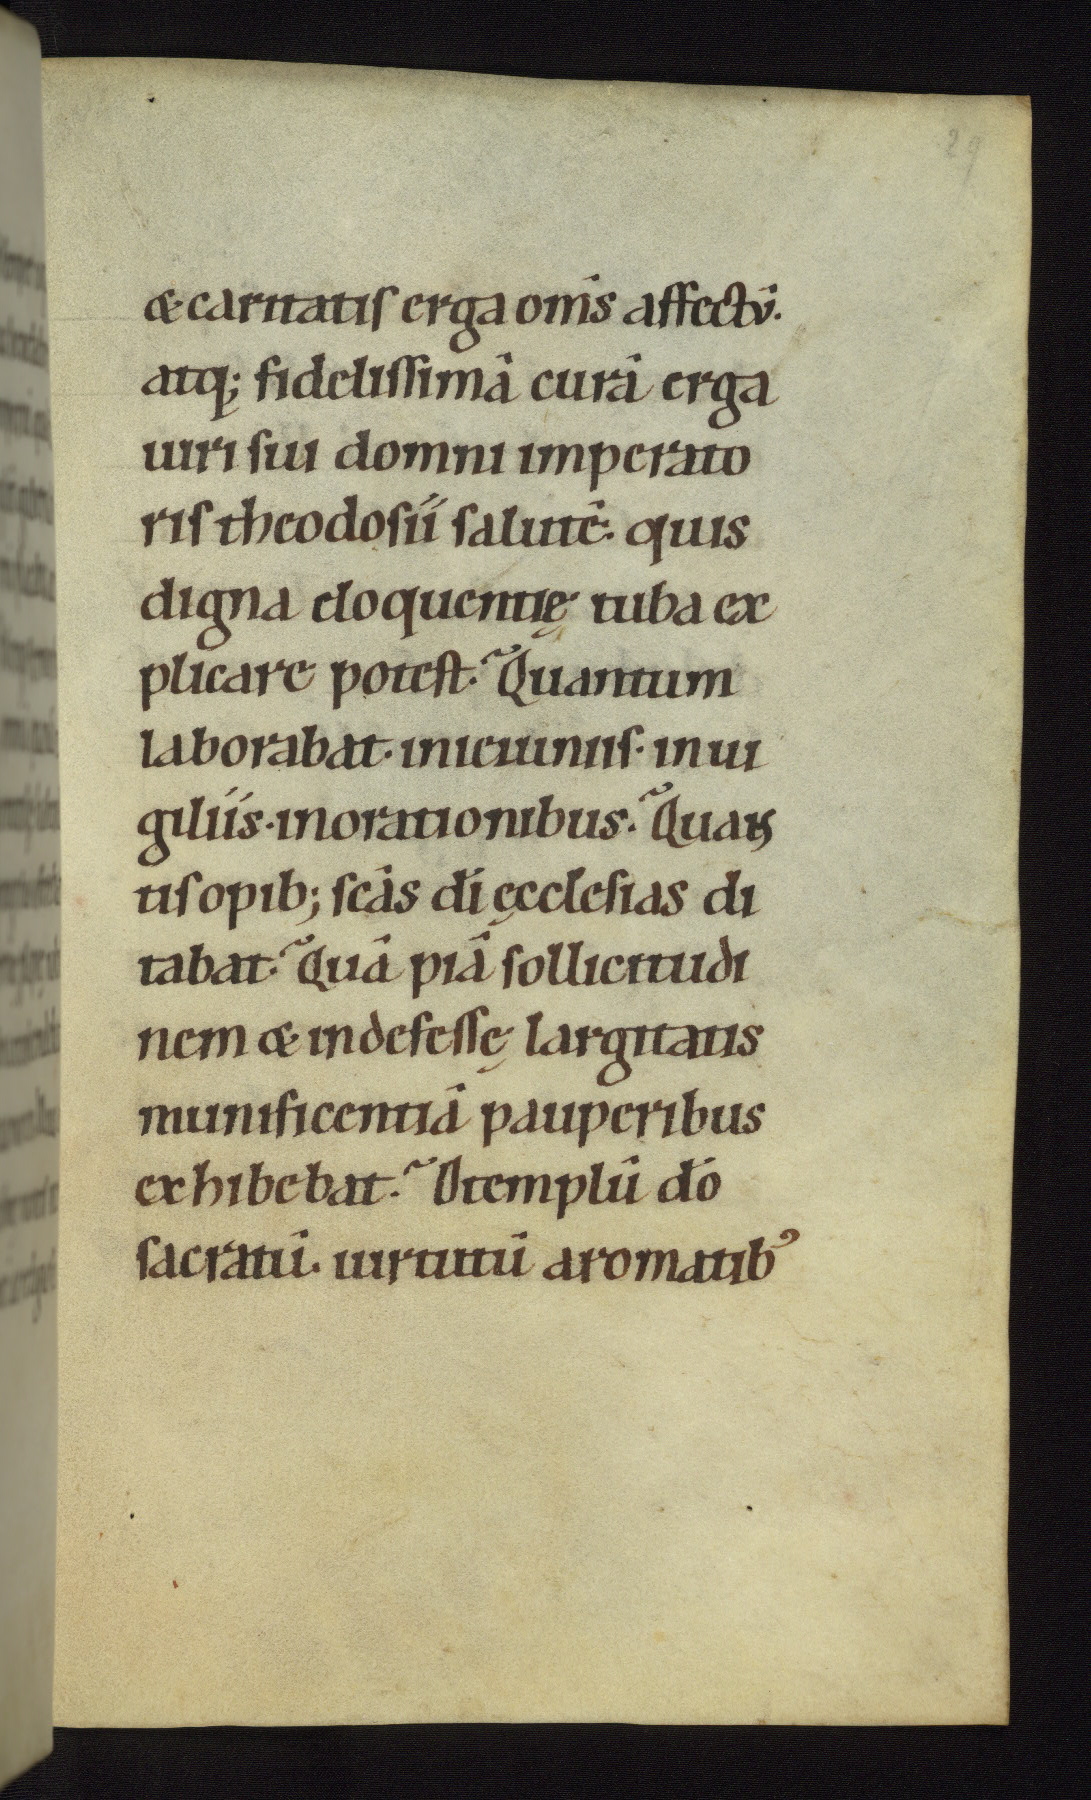 29
& caritatis erga om̄s affectū.
atq; fidelissimā curā erga
uiri sui domni imperato
ris theodosii salutē. quis
digna eloquentię tuba ex
plicare potest? Quantum
laborabat. in ieiuniis. in ui
giliis. in orationibus? Quan
tis opib; sc̄as d̄i ęcclesias di
tabat? Quā piā sollicitudi
nem & indefessę largitatis
munificentiā pauperibus
exhibebat? O templū d̄o
sacratū. uirtutū aromatibꝰ